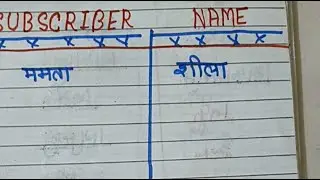 SUBSCRIBER NAME
x x x x x x x x x
ममता शीला